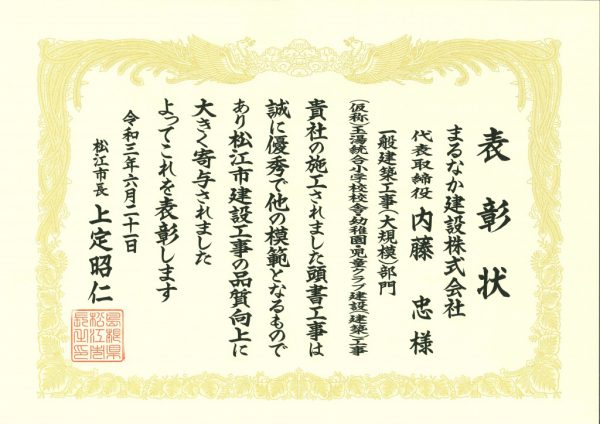 表彰状
まるなか建設株式会社
代表取締役 内藤 忠 様
一般建築工事(大規模)部門
(仮称)玉湯統合小学校校舎・幼稚園・児童クラブ建設(建築)工事
貴社の施工されました頭書工事は
誠に優秀で他の模範となるもので
あり松江市建設工事の品質向上に
大きく寄与されました
よってこれを表彰します
令和三年六月二十一日
松江市長 上定昭仁
島根県
松江市
長之印